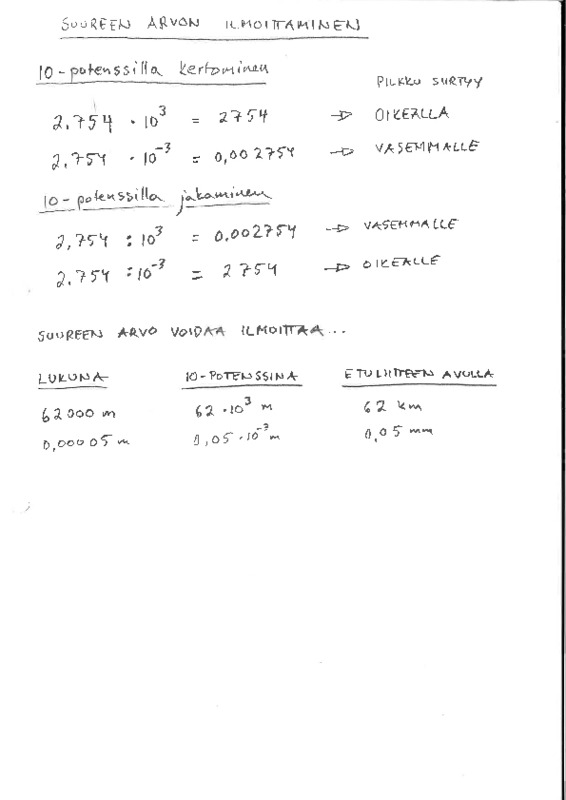 SUUREEN ARVON ILMOITTAMINEN
10-potenssilla kertominen
PILKKU SIIRTYY
2,754 · 10³ = 2754 → OIKEALLA
2,754 · 10⁻³ = 0,002754 → VASEMMALLE
10-potenssilla jakaminen
2,754 : 10³ = 0,002754 → VASEMMALLE
2,754 : 10⁻³ = 2754 → OIKEALLE
SUUREEN ARVO VOIDAA ILMOITTAA...
LUKUNA 10-POTENSSINA ETULIITTEEN AVULLA
62000 m 62 · 10³ m 62 km
0,00005 m 0,05 · 10⁻³ m 0,05 mm